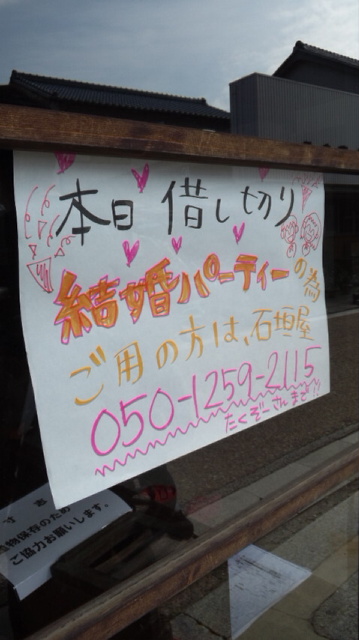 本日 借し切り
結婚パーティーの為
ご用の方は、石垣屋
050-1259-2115
たくぞーさんまで!!
ご協力お願いします。